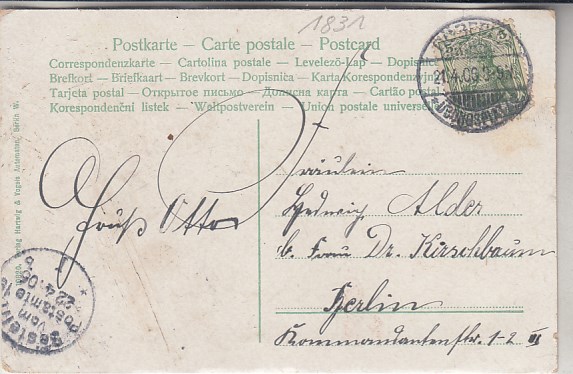 1831
Postkarte — Carte postale — Postcard
Correspondenzkarte — Cartolina postale — Levelező-Lap — Dopisnice
Brefkort — Briefkaart — Brevkort — Dopisnica — Karta Korespondenzyjna
Tarjeta postal — Открытое письмо — Дописна карта — Cartão postal
Korespondenční listek — Weltpostverein — Union postale universelle
21.4.09
ÜBUNGSPLATZ
Fräulein
Hedwig Alder
b. Frau Dr. Kirschbaum
Berlin
Kommandantenstr. 1-2 III
Gruß Otto
Verlag Hartwig & Vogels Automaten, Berlin W.
Bestellt
vom
Postamte
22.4.09